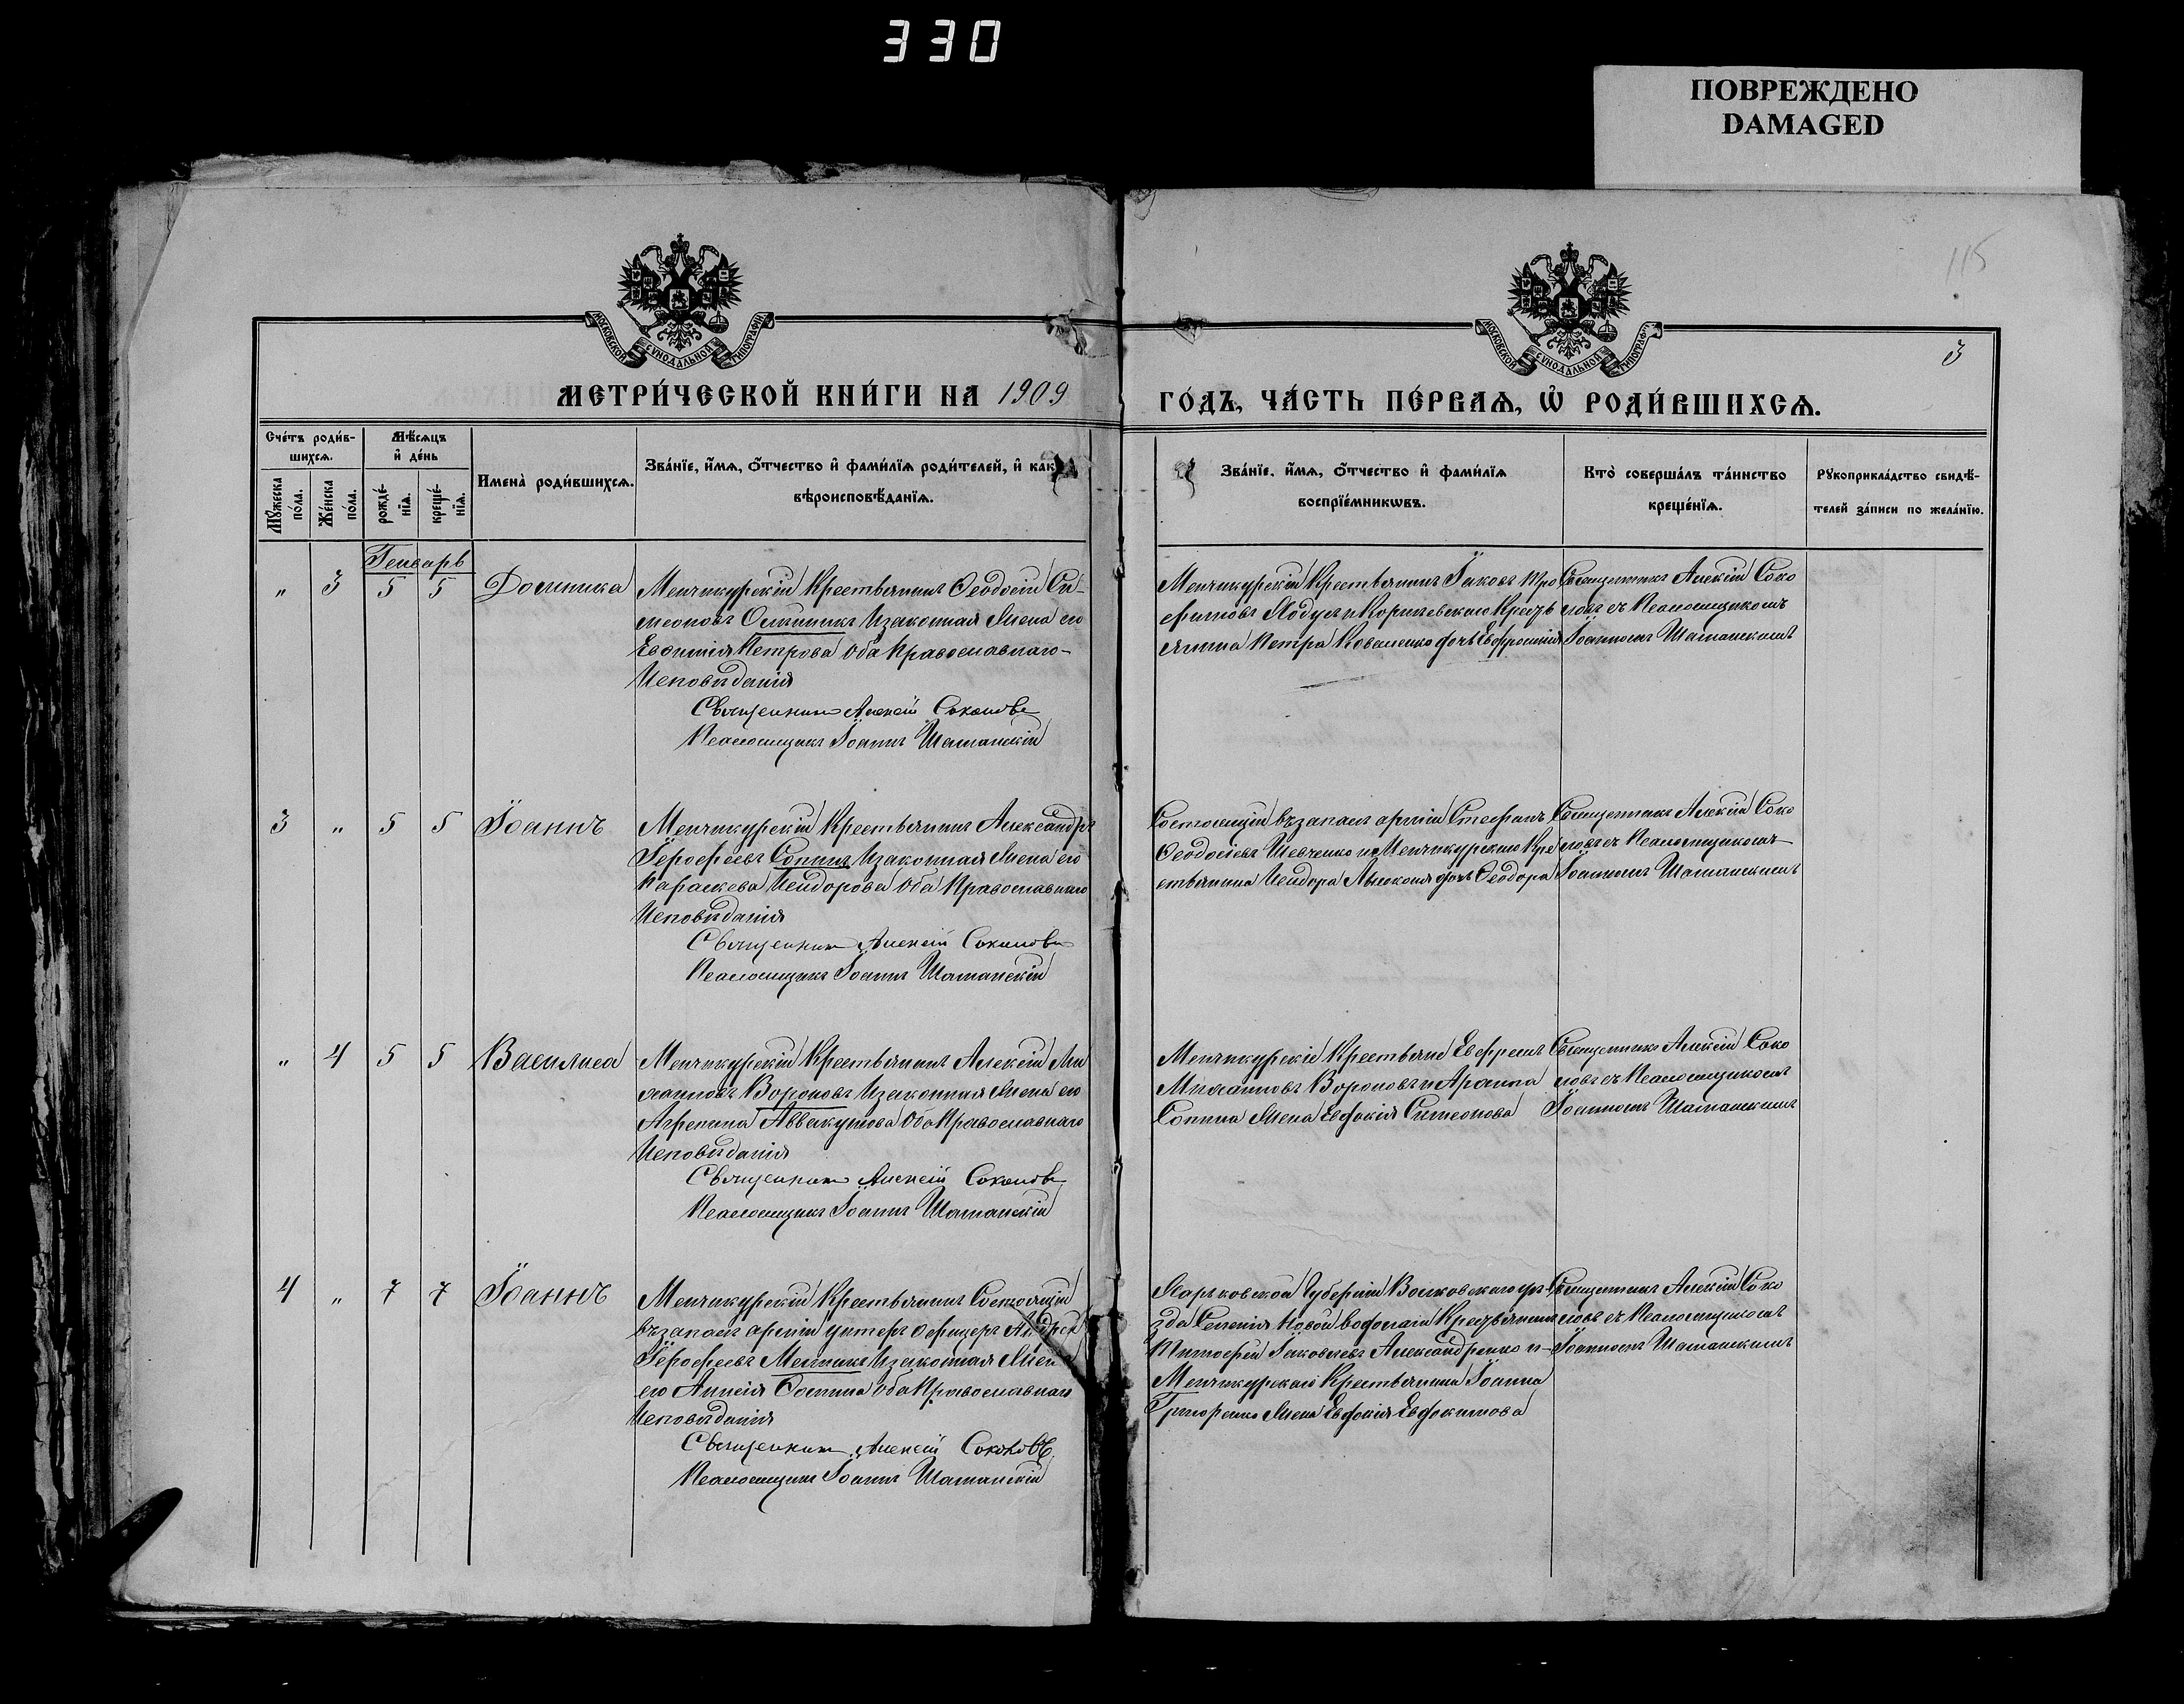 330
ПОВРЕЖДЕНО
DAMAGED
115
МОСКОВСКОЙ СѴНОДАЛЬНОЙ ТИПОГРАФІИ
МОСКОВСКОЙ СѴНОДАЛЬНОЙ ТИПОГРАФІИ
3
МЕТРИ́ЧЕСКОЙ КНИ́ГИ НА 1909
ГО́ДЪ, ЧА́СТЬ ПЕ́РВАѦ, Ѡ РОДИ́ВШИХСѦ.
Сче́тъ роди́в-
шихсѧ.
Мѣ́сѧцъ
и҆ де́нь
Мꙋ́жеска по́ла.
Же́нска по́ла.
рожде́-
нїѧ.
креще́-
нїѧ.
Имена̀ роди́вшихсѧ.
Зва́нїе, и҆́мѧ, ѻ҆́тчество и҆ фами́лїѧ роди́телей, и҆ как
вѣроисповѣ́данїѧ.
Зва́нїе, и҆́мѧ, ѻ҆́тчество и҆ фами́лїѧ
воспрїе́мникѡвъ.
Кто̀ соверша́лъ та́инство
креще́нїѧ.
Рꙋкоприкла́дство свидѣ́-
телей за́писи по жела́нїю.
Генварь
„ 3 5 5 Домника
Менчикурскій Крестьянинъ Ѳеодосій Си-
меоновъ Олейникъ Изаконная Жена его
Евѳимія Петрова Оба Православнаго-
Исповѣданія
Священникъ Алексій Соколовъ
Псаломщикъ Іоаннъ Шаманскій
Менчикурскій Крестьянинъ Іаковъ Тро
фимовъ и Крестъ
янина Петра Коваленко дочь Евфросинія
Священникъ Алексій Соко
ловъ съ Псаломщикомъ
Іоанномъ Шаманскимъ
3 „ 5 5 Іоаннъ
Менчикурскій Крестьянинъ Александръ
Іерофеевъ Сопинъ Изаконная Жена его
Параскева Исидорова Оба Православнаго
Исповѣданія
Священникъ Алексій Соколовъ
Псаломщикъ Іоаннъ Шаманскій
Состоящій въ запасѣ арміи Стефанъ
Ѳеодосіевъ Шевченко и Менчикурскаго Кре
стьянина Исидора дочь Ѳеодора
Священникъ Алексій Соко
ловъ съ Псаломщикомъ
Іоанномъ Шаманскимъ
„ 4 5 5 Василиса
Менчикурскій Крестьянинъ Алексій Ми
хаиловъ Вороновъ Изаконная Жена его
Агрепина Аввакумова Оба Православнаго
Исповѣданія
Священникъ Алексій Соколовъ
Псаломщикъ Іоаннъ Шаманскій
Менчикурскіе Крестьяне Ефремъ
Михаиловъ Вороновъ и
Сопина Жена Евдокія Симеонова
Священникъ Алексій Соко
ловъ съ Псаломщикомъ
Іоанномъ Шаманскимъ
4 „ 7 7 Іоаннъ
Менчикурскій Крестьянинъ Состоящій
въ запасѣ арміи унтеръ офицеръ Андрей
Іерофеевъ Мельникъ Изаконная Жена
его Анисія Ѳомина Оба Православнаго
Исповѣданія
Священникъ Алексій Соколовъ
Псаломщикъ Іоаннъ Шаманскій
Харьковской Губерніи Волковскаго уѣ-
зда Селенія Новой водолаги Крестьянинъ
Тимофей Іаковлевъ Александренко и-
Менчикурскаго Крестьянина Іоанна
Григоренко Жена Евдокія Евдокимова
Священникъ Алексій Соко
ловъ съ Псаломщикомъ
Іоанномъ Шаманскимъ